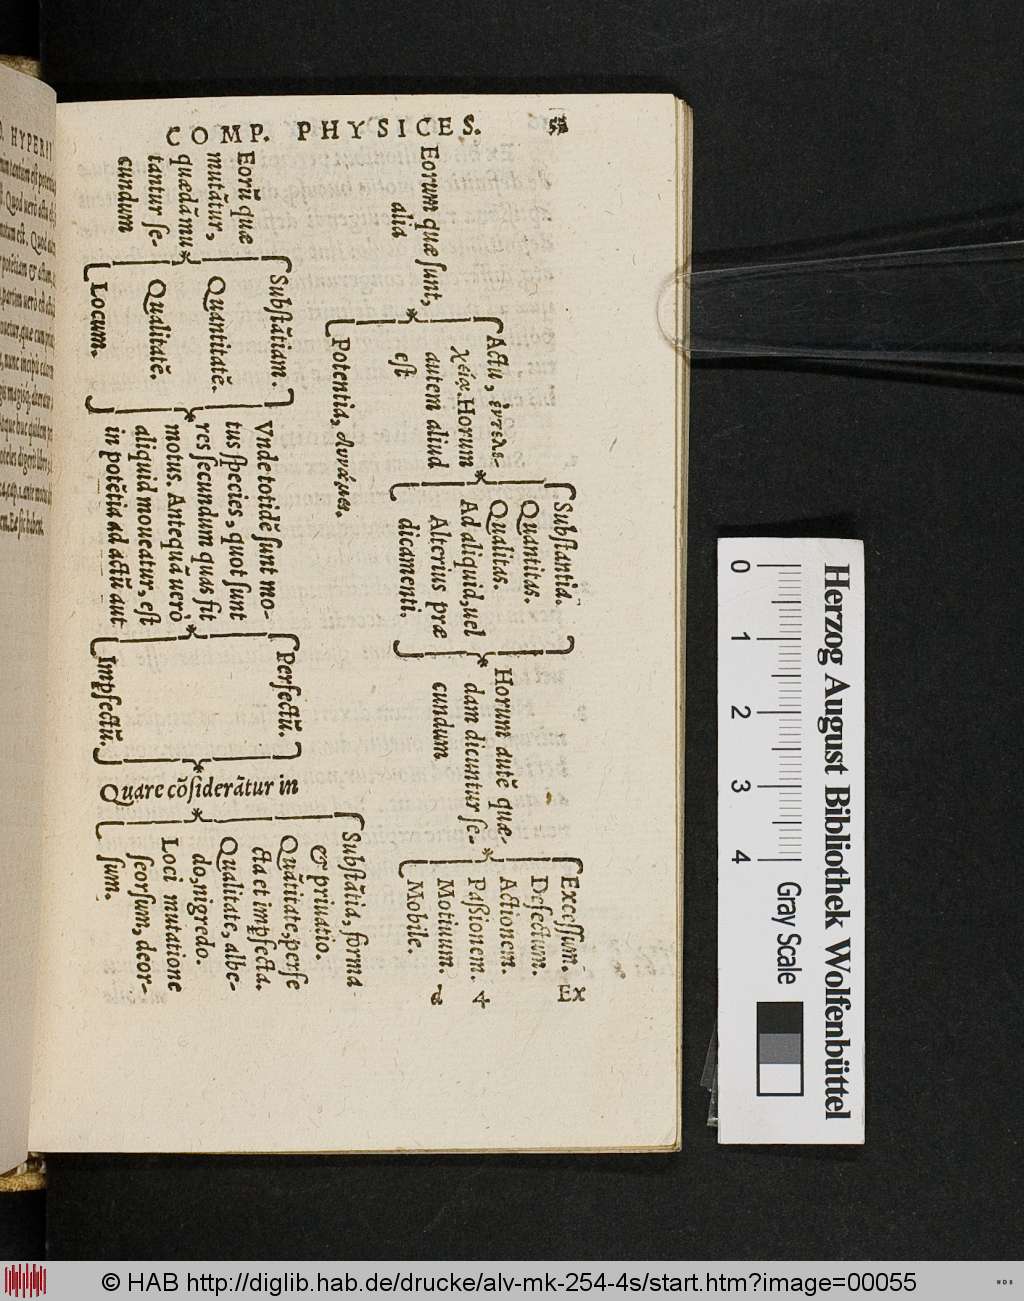 COMP. PHYSICES.
Eorum quæ ſunt,
alia
Actu, ἐντελε-
χείᾳ. Horum
autem aliud
eſt
Potentia, δυνάμει.
Subſtantia.
Quantitas.
Qualitas.
Ad aliquid, uel
Alterius præ
dicamenti.
Horum autē quæ-
dam dicuntur ſe-
cundum
Exceſſum.
Defectum.
Actionem.
Paßionem.
Motiuum.
Mobile.
Ex
Eorū quæ
mutātur,
quædā mu
tantur ſe-
cundum
Subſtātiam.
Quantitatē.
Qualitatē.
Locum.
Vnde totidē ſunt mo-
tus ſpecies, quot ſunt
res ſecundum quas fit
motus. Antequā uerò
aliquid moueatur, eſt
in potētia ad actū aut
Perfectū.
Imꝑfectū.
Quare cōſiderātur in
Subſtātia, forma
& priuatio.
Quātitate, perfe
cta et imꝑfecta.
Qualitate, albe-
do, nigredo.
Loci mutatione
ſeorſum, deor-
ſum.
Herzog August Bibliothek Wolfenbüttel
0 1 2 3 4
Gray Scale
© HAB http://diglib.hab.de/drucke/alv-mk-254-4s/start.htm?image=00055